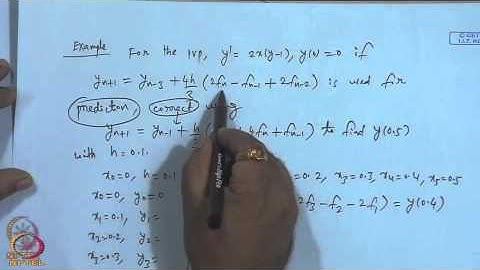 © CET
I.I.T. KGP
Example For the IVP, y' = 2x(y-1), y(0) = 0 if
y_{n+1} = y_{n-3} + 4h/3 (2f_n - f_{n-1} + 2f_{n-2}) is used for
prediction, correct using
y_{n+1} = y_{n-1} + h/3 ( + 4f_n + f_{n-1}) to find y(0.5)
with h = 0.1.
x_0 = 0, = 0.2, x_3 = 0.3, x_4 = 0.4, x_5 = 0.5
x_0 = 0, y_0 = 0
x_1 = 0.1, y_1 = 2f_3 - f_2 - 2f_1) = y(0.4)
x_2 = 0.2, y_2 =
x_3 = 0.3, y_3 =